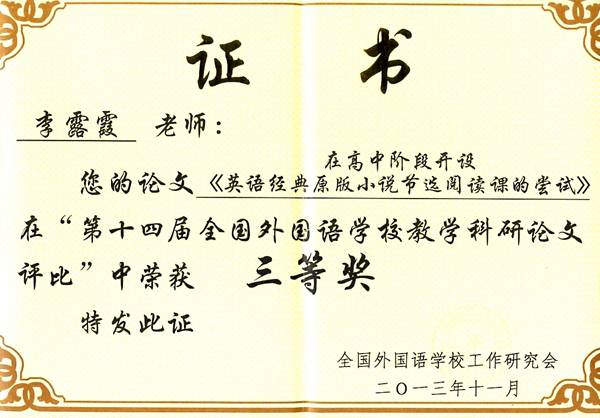 证书
李露霞 老师：
在高中阶段开设
您的论文《英语经典原版小说节选阅读课的尝试》
在“第十四届全国外国语学校教学科研论文
评比”中荣获 三等奖
特发此证
全国外国语学校工作研究会
二〇一三年十一月